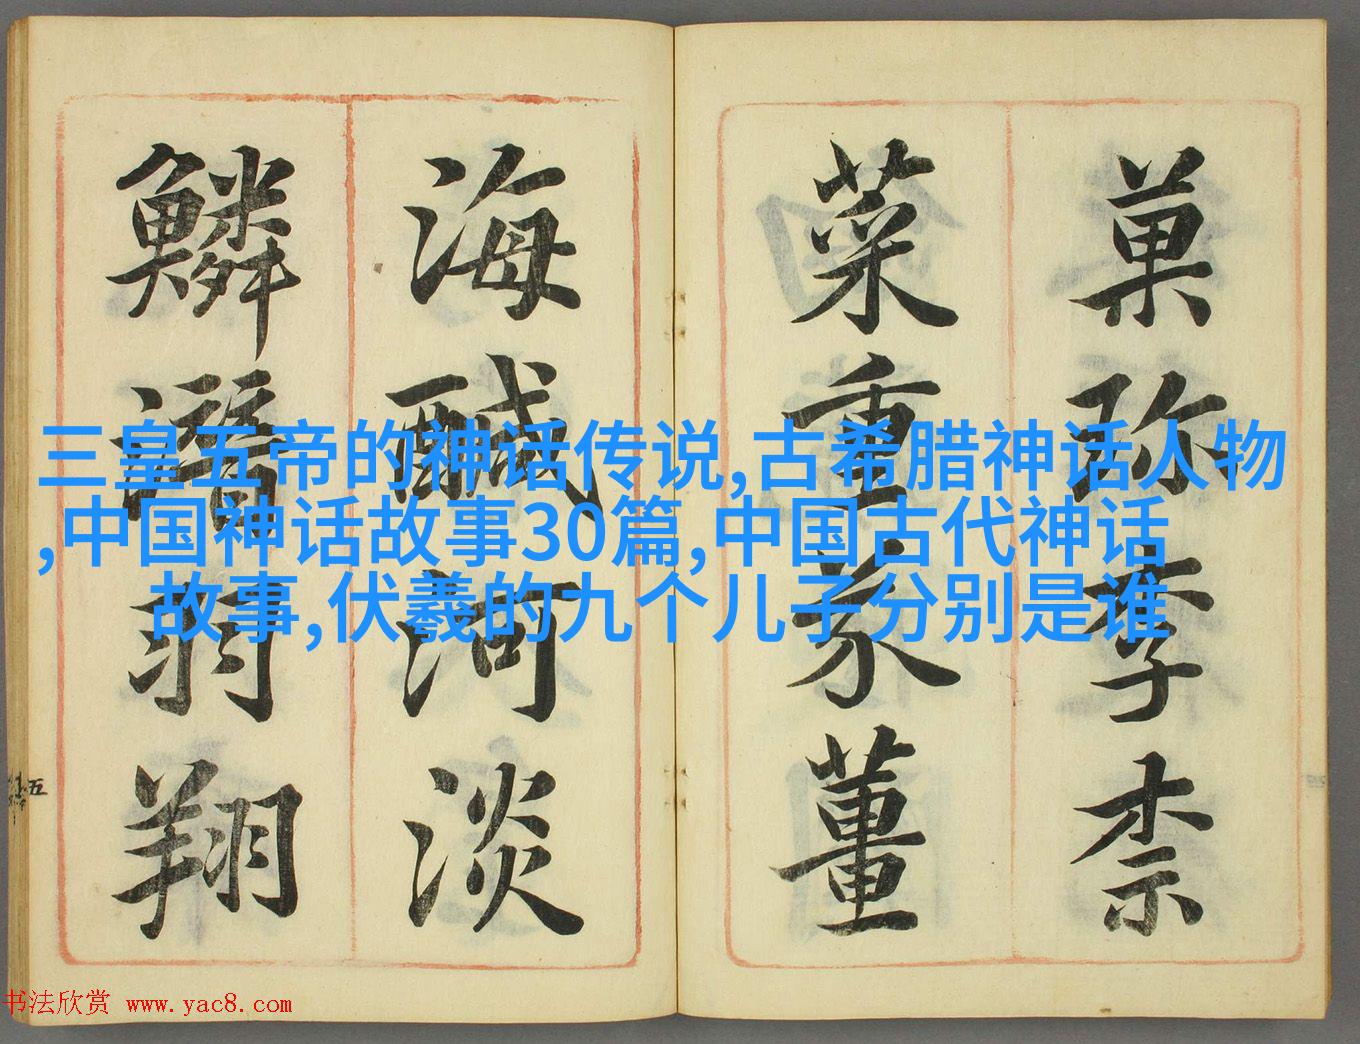 菓珎李柰
菜重芥薑
海醎河淡
鱗潛羽翔
五
三皇五帝的神话传说,古希腊神话人物
,中国神话故事30篇,中国古代神话
故事,伏羲的九个儿子分别是谁
书法欣赏 www.yac8.com